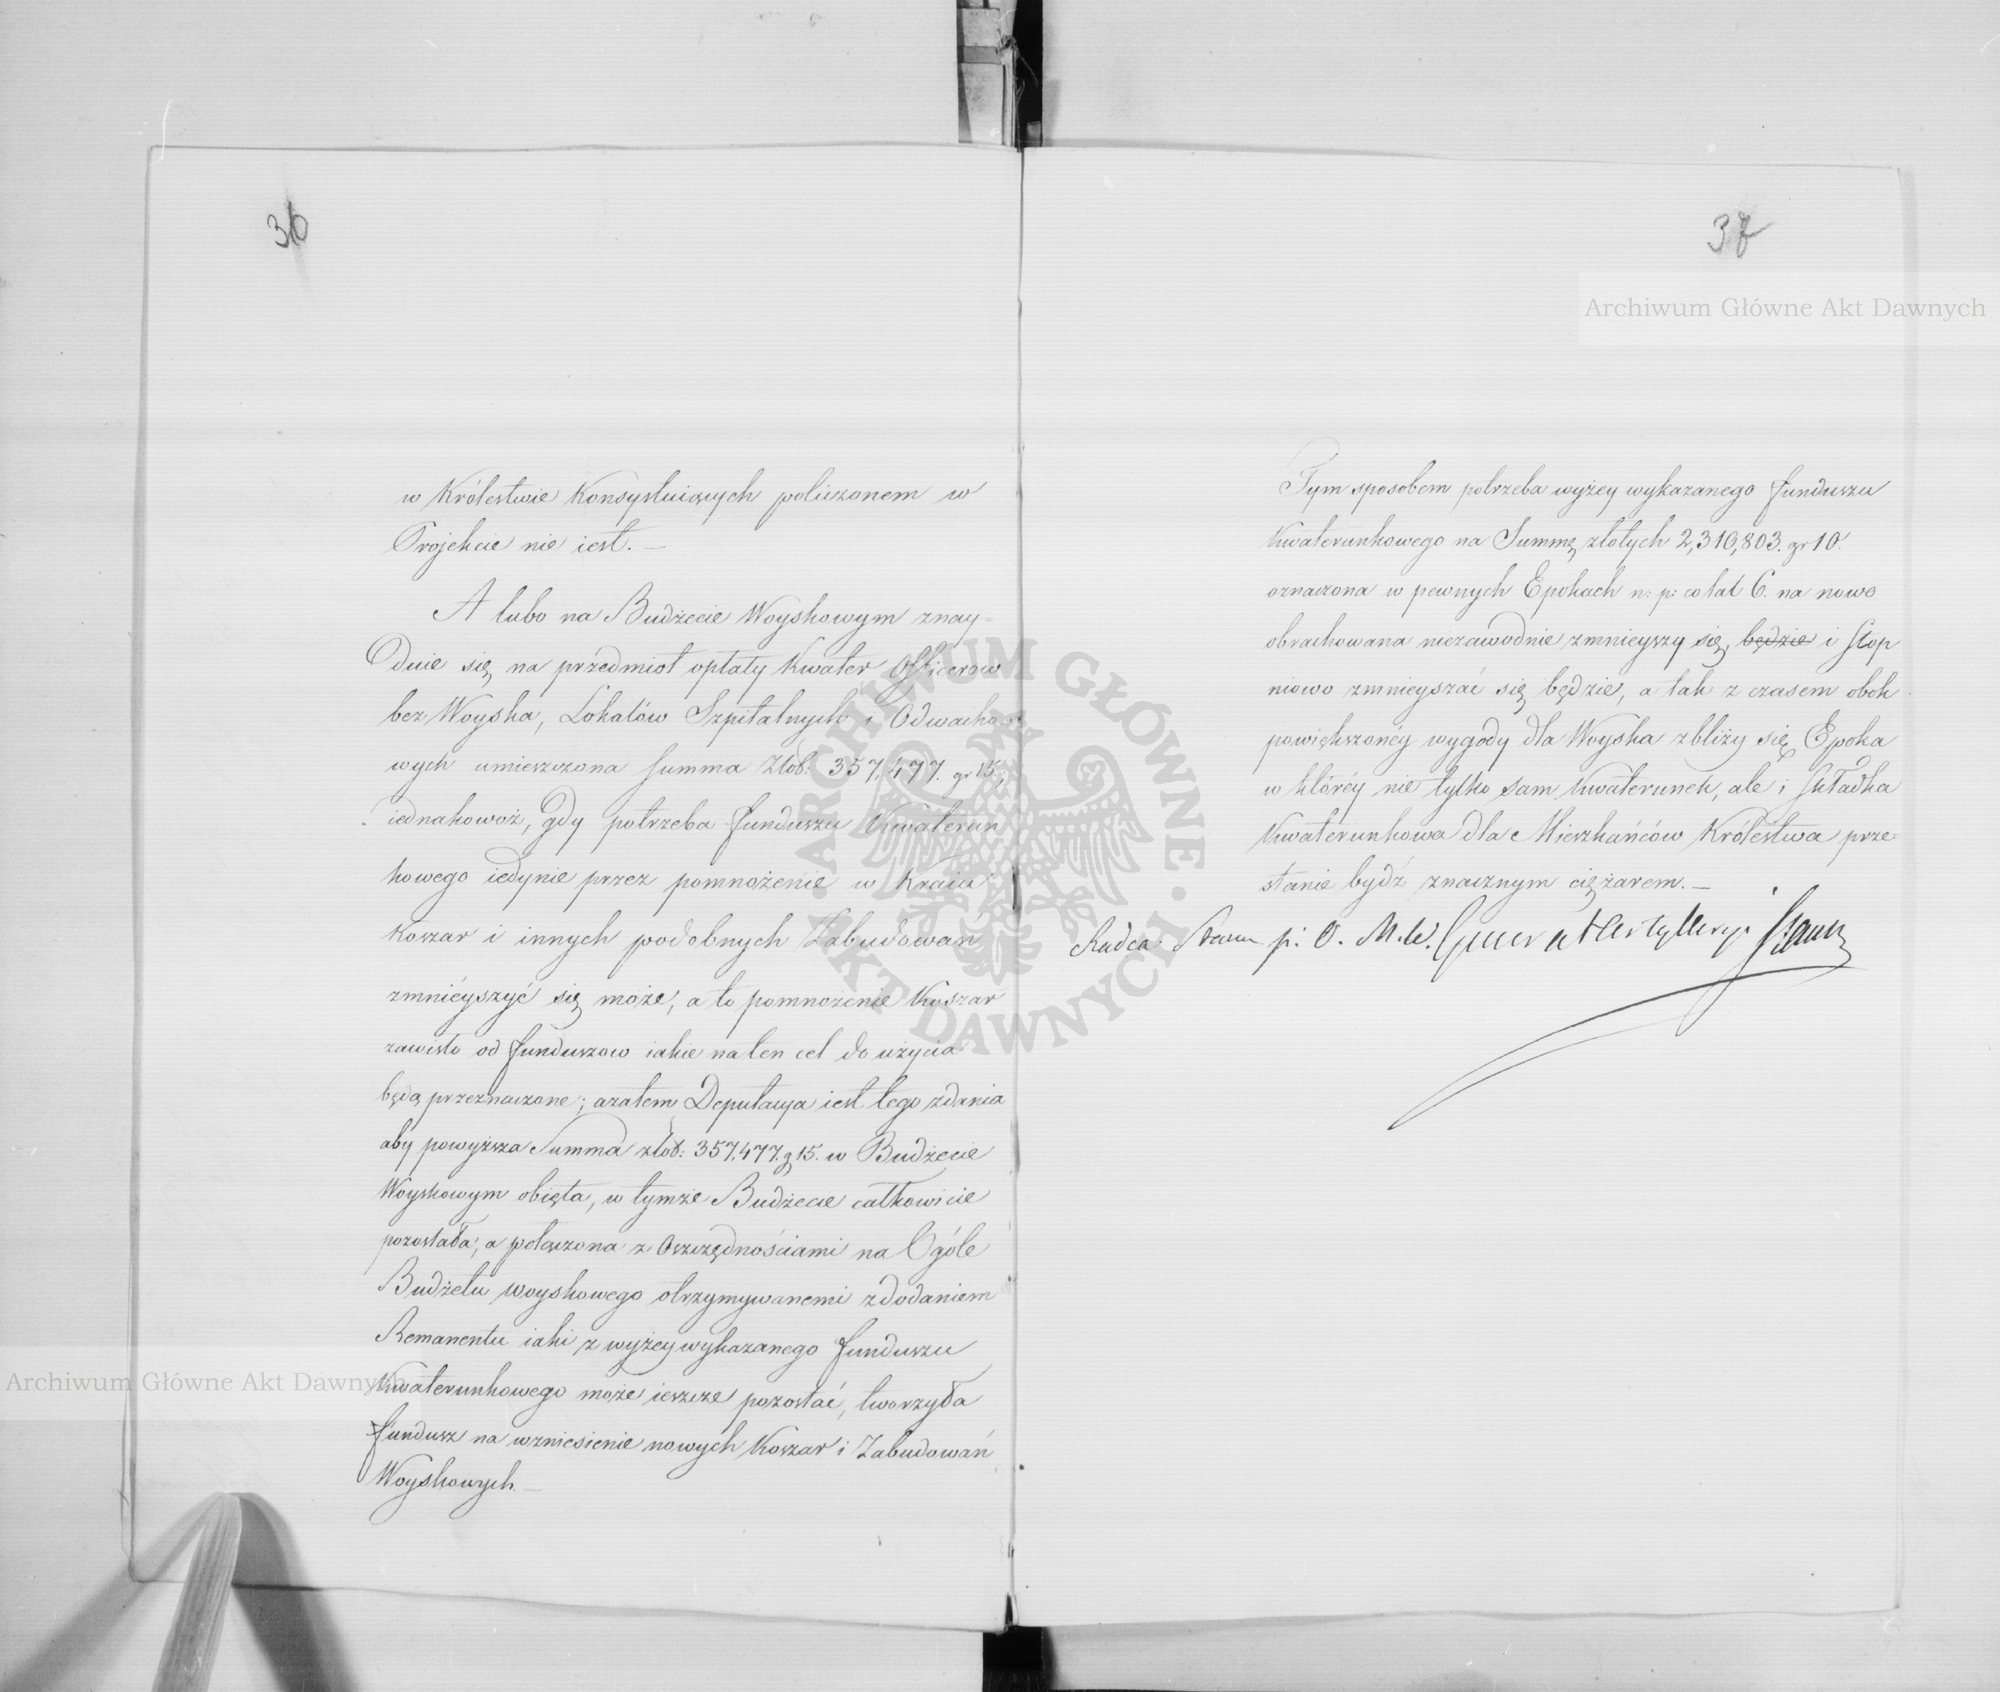 36
w Królestwie Konsystuiących policzonem w
Projekcie nie iest. —
A lubo na Budżecie Woyskowym znay=
duie się na przedmiot opłaty Kwater Officerow
bez Woyska, Lokalów Szpitalnych i Odwacho=
wych umieszczona summa Złotᵈ: 357,477. gr 15,
iednakowoż, gdy potrzeba funduszu Kwaterun
kowego iedynie przez pomnożenie w Kraiu
Koszar i innych podobnych Zabudowań
zmnieyszyć się może, a to pomnożenie Koszar
zawisło od funduszow iakie na ten cel do użycia
będą przeznaczone; azatem Deputacya iest tego zdania
aby powyższa Summa złotᵈ: 357,477. g 15. w Budżecie
Woyskowym obięta, w tymże Budżecie całkowicie
pozostała, a połączona z Oszczędnościami na Ogóle
Budżetu woyskowego otrzymywanemi z dodaniem
Remanentu iaki z wyżey wykazanego funduszu
Kwaterunkowego może ieszcze pozostać, tworzyła
fundusz na wzniesienie nowych Koszar i Zabudowań
Woyskowych. —
37
Tym sposobem potrzeba wyżey wykazanego funduszu
Kwaterunkowego na Summę złotych 2,310,803. gr 10.
oznaczona w pewnych Epokach n: p: co lat 6. na nowo
obrachowana niezawodnie zmnieyszy się, będzie i stop
niowo zmnieyszać się będzie, a tak z czasem obok
powiększoney wygody dla Woyska zbliży się Epoka
w którey nie tylko sam Kwaterunek, ale i składka
Kwaterunkowa dla Mieszkańców Królestwa prze=
stanie bydź znacznym ciężarem. —
Radca Stanu p: O. M. W. Generał Artylleryi
Archiwum Główne Akt Dawnych
Archiwum Główne Akt Dawnych
ARCHIWUM GŁÓWNE · AKT DAWNYCH ·